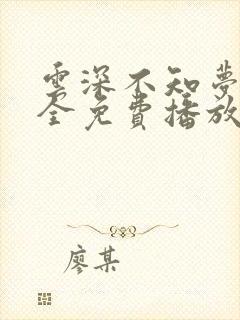 雲深不知夢
全免費播放
廖某